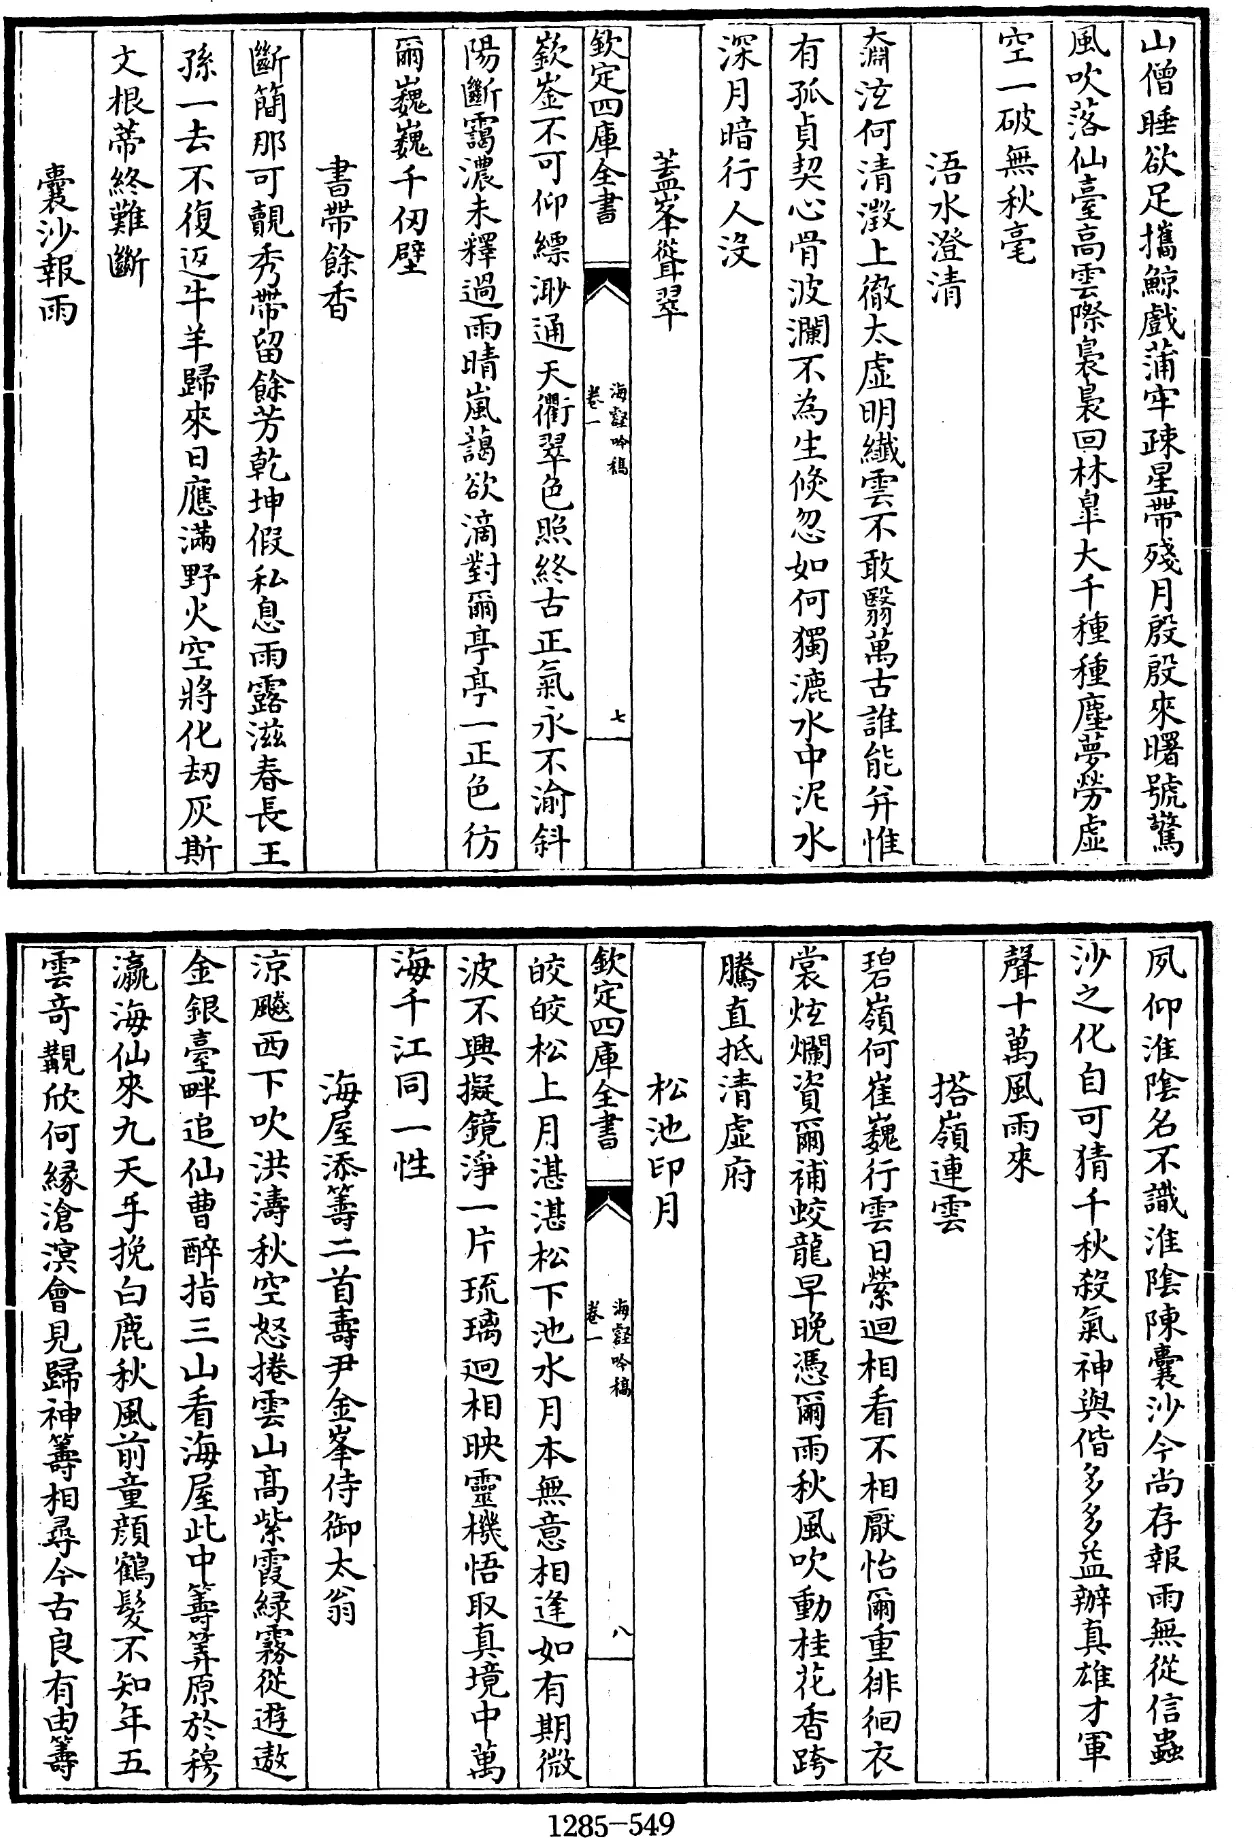 山僧睡欲足攜鯨戲蒲牢疎星帶殘月殷殷來曙號驚
風吹落仙臺高雲際裊裊回林臯大千種種塵夢勞虛
空一破無秋毫
浯水澄清
奫泫何清澂上徹太虛明纖雲不敢翳萬古誰能并惟
有孤貞契心骨波瀾不為生倐忽如何獨漉水中泥水
深月暗行人没
蓋峯聳翠
欽定四庫全書
海壑吟稿
卷一
七
嶔崟不可仰縹渺通天衢翠色照終古正氣永不渝斜
陽斷靄濃未釋過雨晴嵐藹欲滴對爾亭亭一正色彷
爾巍巍千仞壁
書帶餘香
斷簡那可覿秀帶留餘芳乾坤假私息雨露滋春長王
孫一去不復返牛羊歸來日應滿野火空將化刼灰斯
文根蔕終難斷
囊沙報雨
夙仰淮陰名不識淮陰陳囊沙今尚存報雨無從信蟲
沙之化自可猜千秋殺氣神與偕多多益辦真雄才軍
聲十萬風雨來
搭嶺連雲
碧嶺何崔巍行雲日縈迴相看不相厭怡爾重徘徊衣
裳炫爛資爾補蛟龍早晚憑爾雨秋風吹動桂花香跨
騰直抵清虛府
松池印月
欽定四庫全書
海壑吟稿
卷一
八
皎皎松上月湛湛松下池水月本無意相逢如有期微
波不興擬鏡淨一片琉璃迥相映靈機悟取真境中萬
海千江同一性
海屋添籌二首壽尹金峯侍御太翁
涼飈西下吹洪濤秋空怒捲雲山高紫霞綠霧從遊遨
金銀臺畔追仙曹醉指三山看海屋此中籌筭原於穆
瀛海仙來九天乎挽白鹿秋風前童顔鶴髮不知年五
雲竒觀欣何緣滄溟會見歸神籌相尋今古良有由籌
1285-549